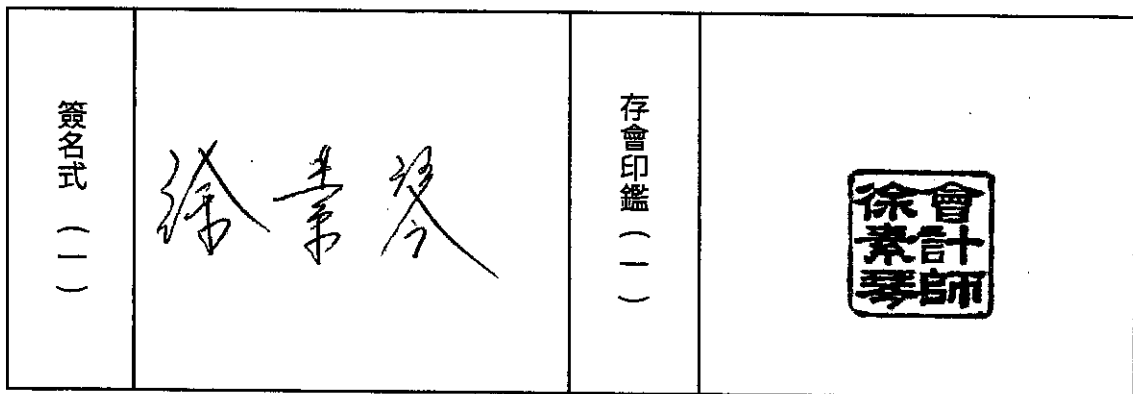 簽名式（一）
徐素琴
存會印鑑（一）
會計師
徐素琴